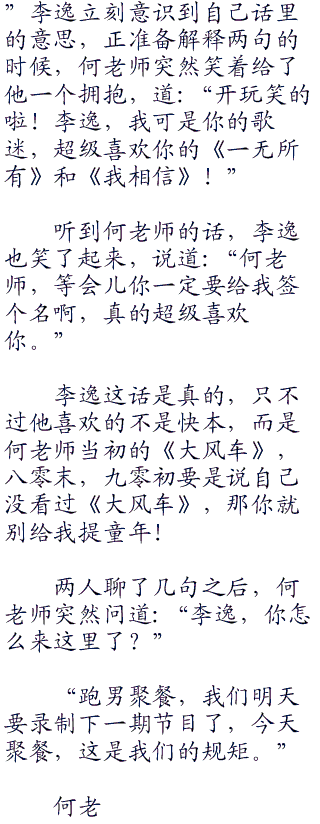 ”李逸立刻意识到自己话里
的意思，正准备解释两句的
时候，何老师突然笑着给了
他一个拥抱，道：“开玩笑的
啦！李逸，我可是你的歌
迷，超级喜欢你的《一无所
有》和《我相信》！”
听到何老师的话，李逸
也笑了起来，说道：“何老
师，等会儿你一定要给我签
个名啊，真的超级喜欢
你。”
李逸这话是真的，只不
过他喜欢的不是快本，而是
何老师当初的《大风车》，
八零末，九零初要是说自己
没看过《大风车》，那你就
别给我提童年！
两人聊了几句之后，何
老师突然问道：“李逸，你怎
么来这里了？”
“跑男聚餐，我们明天
要录制下一期节目了，今天
聚餐，这是我们的规矩。”
何老